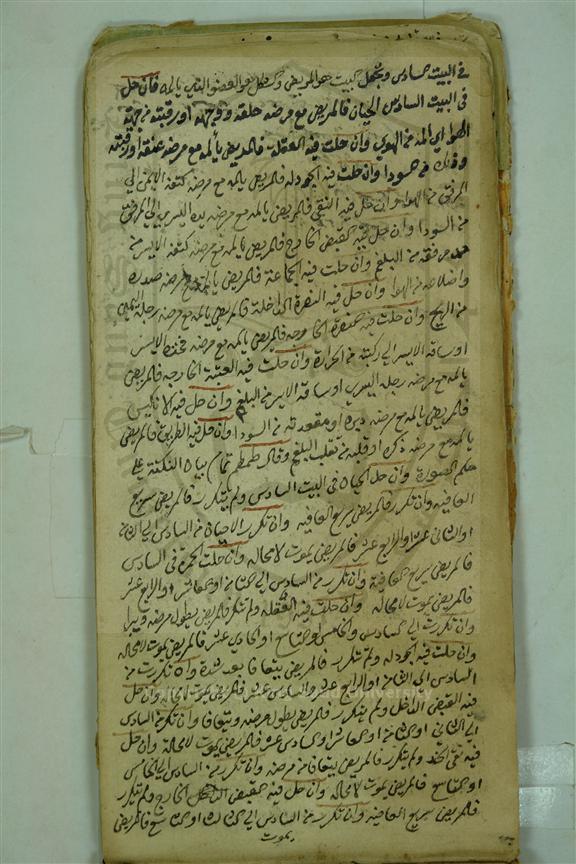 في البيت السادس وتجعل البيت هو المريض وكذلك هو العضو الذي يالمه فان حل
في البيت السادس الحيان فالمريض مع مرضه حلقه ووجهه او رقبته من جهة
الهوا اي المه من الهوي وان حلت فيه العقلة فالمريض يألمه مع مرضه عنقه او رقبته
وذلك من السودا وان حلت فيه الجودله فالمريض يالمه مع مرضه كتفه الايمن الي
المرفق من الهوا وان حل فيه النقي فالمريض يالمه مع مرضه يده اليسري الي المرفق
من السودا وان حل فيه القبض الخارج فالمريض يالمه مع مرضه كتفه الايسر من
مرفقه من البلغم وان حلت فيه الجماعة فالمريض يالمه مع مرضه صدره
واضلاعه من الهوا وان حل فيه النصرة الداخلة فالمريض يالمه مع مرضه رجله اليمين
من الريح وان حلت فيه النصرة الخارجه فالمريض يالمه مع مرضه فخذه الايسر
او ساقه الايسر الي ركبته من الحرارة وان حلت فيه العتبة الخارجه فالمريض
يالمه مع مرضه رجله اليسري او ساقه الايسر من البلغم وان حل فيه الانكيس
فالمريض يالمه مع مرضه دبره او مقعودته من السودا وان حل فيه الطريق فالمريض
يالمه مع مرضه ذكره او قلبه من تقلب البلغم وقال طمطم تمام بيان النكتة علي
حكم الصورة وان حل الحياة في البيت السادس ولم يتكرر فالمريض سريع
العافيه وان تكرر فالمريض سريع العافيه وان تكرر الاحيان من السادس الي الثامن
او الثاني عشر او الرابع عشر فالمريض يموت لا محاله وان حلت الحمرة في السادس
فالمريض سريع العافية وان تكرر من السادس الي الثامن او العاشر او الرابع عشر
فالمريض يموت لا محاله وان حلت فيه العقله ولم تتكرر فالمريض يطول مرضه ويبرا
وان تكررت الي السادس والخامس او التاسع او الحادي عشر فالمريض يموت لا محاله
وان حلت فيه الجودله ولم تتكرر فالمريض يتعافا بعد شدة وان تكررت من
السادس الي الثامن او الرابع عشر والسادس عشر فالمريض يموت لا محاله وان حل
فيه القبض الداخل ولم يتكرر فالمريض يطول مرضه ويتعافا وان تكرر من السادس
الي الثاني او الثامن او العاشر او السادس عشر فالمريض يموت لا محالة وان حل
فيه نقي الخد ولم يتكرر فالمريض يتعافا من مرضه وان تكرر من السادس الي الخامس
او التاسع فالمريض يموت لا محاله وان حل فيه القبض الخارج ولم يتكرر
فالمريض سريع العافيه وان تكرر من السادس الي الثامن او التاسع فالمريض
يموت